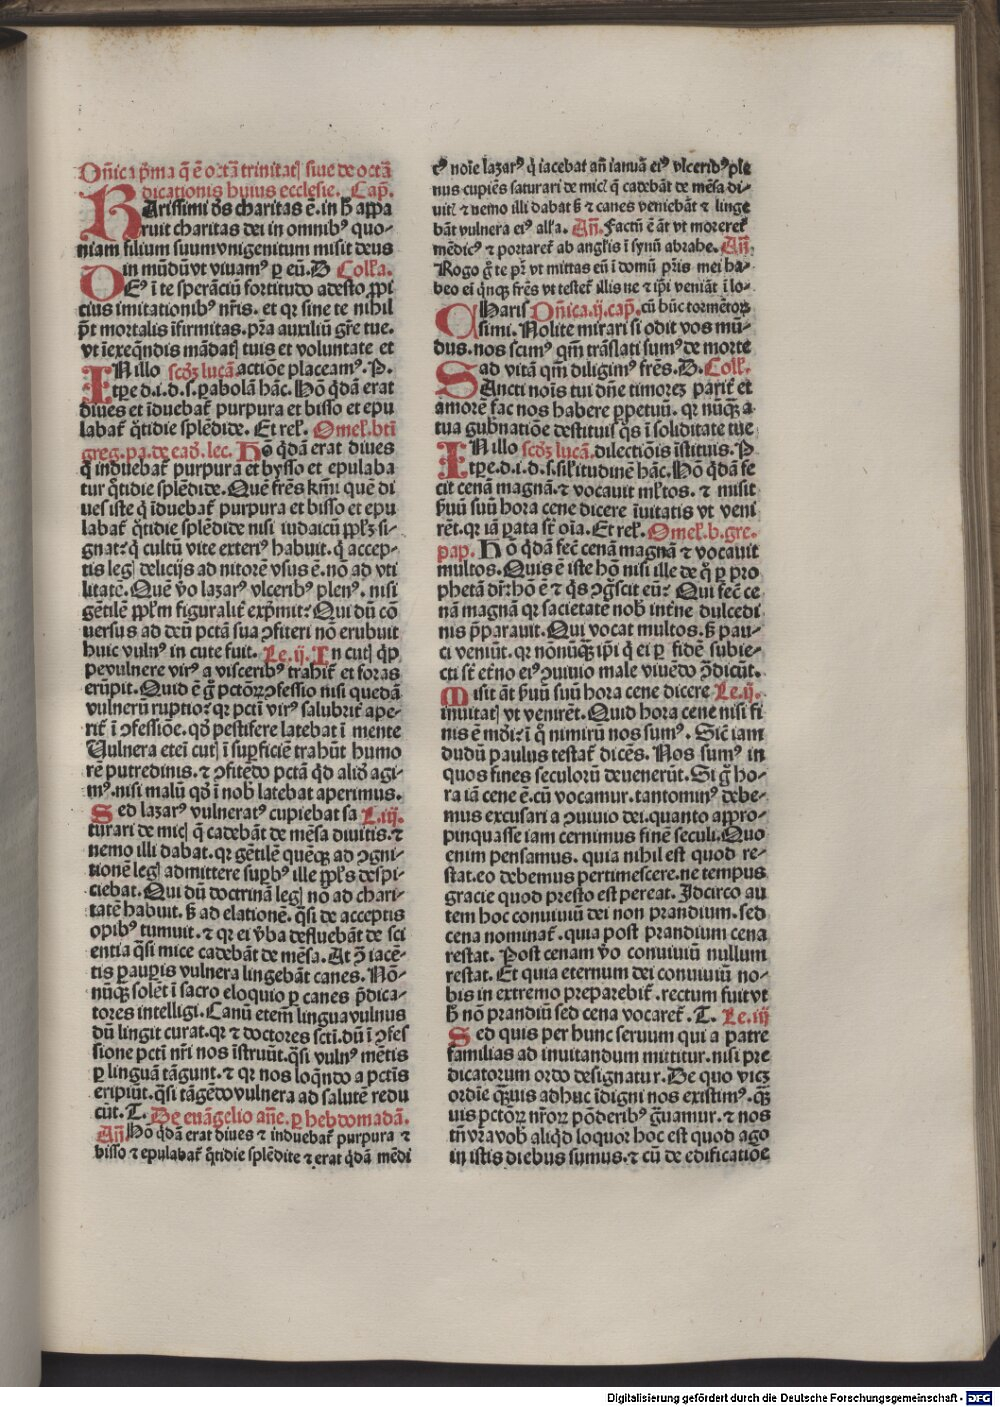 Dn̄ica p̄ma q̄ ē octā trinitatꝭ siue de octā
dicationis huius ecclesie. Cap̄.
KArissimi d̄s charitas ē. in h̄ appa
ruit charitas dei in omnibꝰ quo-
niam filium suum vnigenitum misit deus
in mūdū vt viuamꝰ ꝑ eū. D Colka.
DEꝰ ī te sperāciū fortitudo adesto ꝓpi
cius inuitationibꝰ nr̄is. et qr sine te nihil
p̄t mortalis īfirmitas. p̄ra auxiliū gr̄e tue.
vt ī exeq̄ndis mādatꝭ tuis et voluntate et
IN illo scd̄ꝫ lucā actiōe placeamꝰ. P.
tp̄e. d. i. d. s. ꝑabolā hāc. Hō q̄dā erat
diues et īduebat᷑ purpura et bisso et epu
labat᷑ q̄tidie splēdide. Et rel᷑. Omel᷑. bt̄i
greg. pa. de eād̄. lec. Hō q̄dā erat diues
q̄ induebat᷑ purpura et bysso et epulaba
tur q̄tidie splēdide. Quē fr̄es km̄i quē di
ues iste q̄ īduebat᷑ purpura et bisso et epu
labat᷑ q̄tidie splēdide nisi iudaicū ppl̄ꝫ si-
gnat: q̄ cultū vite exteriꝰ habuit. q̄ accep-
tis legꝭ delicijs ad nitorē vsus ē. nō ad vti
litatē. Quē v̄o lazarꝰ vlceribꝰ plenꝰ. nisi
gētilē ppl̄m figuralit᷑ exp̄mit: Qui dū cō
uersus ad deū pctā sua ꝯfiteri nō erubuit
huic vulnꝰ in cute fuit. Le. ij. In cutꝭ q̄p
pe vulnere virꝰ a visceribꝰ trahit᷑ et foras
erūpit. Quid ē g̊ pctōꝝ ꝯfessio nisi quedā
vulnerū ruptio: qr pcti virꝰ salubrit᷑ ape-
rit᷑ ī ꝯfessiōe. qd̄ pestifere latebat ī mente
Vulnera eteī cutꝭ ī suꝑficiē trahūt humo
rē putredinis. ⁊ ꝯfitēdo pctā q̄d aliō agi-
mꝰ. nisi malū qd̄ ī nob̄ latebat aperimus.
Sed lazarꝰ vulneratꝰ cupiebat sa L. iij.
turari de micꝭ q̄ cadebāt de mēsa diuitis. ⁊
nemo illi dabat. qr gētilē quēqꝫ ad ꝯgni-
tionē legꝭ admittere suꝑbꝰ ille ppl̄s despi-
ciebat. Qui dū doctrinā legꝭ nō ad chari-
tatē habuit. s̄ ad elationē. q̄si de acceptis
opibꝰ tumuit. ⁊ qr ei v̄ba defluebāt de sci
entia q̄si mice cadebāt de mēsa. At ꝯ iacē-
tis pauꝑis vulnera lingebāt canes. Nō-
nūqꝫ solēt ī sacro eloquio ꝑ canes p̄dica-
tores intelligi. Canū etem̄ lingua vulnus
dū lingit curat. qr ⁊ doctores scti. dū ī ꝯfes
sione pcti nr̄i nos īstruūt. q̄si vulnꝰ mētis
ꝑ linguā tāgunt. ⁊ qr nos loq̄ndo a pctīs
eripiūt. q̄si tāgēdo vulnera ad salutē redu
cūt. T. De euāgelio an̄e. ꝑ hebdomadā.
An̄. Hō q̄dā erat diues ⁊ induebat᷑ purpura ⁊
bisso ⁊ epulabat᷑ q̄tidie splēdite ⁊ erat q̄dā mēdi
cꝰ noīe lazarꝰ q̄ iacebat an̄ ianuā eiꝰ vlceribꝰ ple
nus cupiēs saturari de micꝭ q̄ cadebāt de mēsa di-
uitꝭ ⁊ nemo illi dabat s̄ ⁊ canes veniebāt ⁊ linge
bāt vulnera eiꝰ alk̄a. An̄. Factū ē āt vt moreret᷑
mēdicꝰ ⁊ portaret᷑ ab angl̄is ī synū abrahe. An̄.
Rogo g̊ te pr̄ vt mittas eū ī domū pr̄is mei ha-
beo ei q̄nqꝫ fr̄es vt testet᷑ illis ne ⁊ ip̄i veniāt ī lo-
CHaris Dn̄ica. ij. cap̄. cū hūc tormētoꝝ
simi. Nolite mirari si odit vos mū-
dus. nos scimꝰ qm̄ trāslati sumꝰ de morte
ad vitā qm̄ diligimꝰ fr̄es. D. Coll᷑.
SAncti noīs tui dn̄e timorēꝫ parit᷑ et
amorē fac nos habere ꝑpetuū. qr nūqꝫ a
tua gub̄natiōe destituis q̄s ī soliditate tue
IN illo scd̄ꝫ lucā. dilectiōis īstituis. P
tp̄e. d. i. d. s. sil᷑itudinē hāc. Hō q̄dā fe
cit cenā magnā. ⁊ vocauit ml̄tos. ⁊ misit
ẜuū suū hora cene dicere īuitatis vt veni
rēt. qr iā ꝑata st̄ oīa. Et rel᷑. Omel᷑. b. gre.
pap. Hō q̄dā fec̄ cenā magnā ⁊ vocauit
multos. Quis ē iste hō nisi ille de q̄ ꝑ pro
phetā dr̄: hō ē ⁊ q̄s ꝯg̊scit eū: Qui fec̄ ce
nā magnā qr sacietatē nob̄ int̄ne dulcedi
nis p̄parauit. Qui vocat multos. s̄ pau-
ci veniūt. qr nōnūqꝫ ip̄i q̄ ei ꝑ fidē subie-
cti st̄ et̄no eiꝰ ꝯuiuio male viuēdo ꝯ̄dicūt.
Misit āt ẜuū suū hora cene dicere Le. ij.
inuitatꝭ vt venirēt. Quid hora cene nisi fi
nis ē mōi: ī q̄ nimirū nos sumꝰ. Sic̄ iam
dudū paulus testat᷑ dicēs. Nos sumꝰ in
quos fines seculorū deuenerūt. Si g̊ ho-
ra iā cene ē. cū vocamur. tantominꝰ debe-
mus excusari a ꝯuiuio dei. quanto appro-
pinquasse iam cernimus finē seculi. Quo
enim pensamus. quia nihil est quod re-
stat. eo debemus pertimescere. ne tempus
gracie quod presto est pereat. Idcirco au
tem hoc conuiuiū dei non prandium. sed
cena nominat᷑. quia post prandium cena
restat. Post cenam v̄o conuiuiū nullum
restat. Et quia eternum dei conuiuiū no-
bis in extremo preparebit᷑. rectum fuit vt
h̄ nō prandiū sed cena vocaret᷑. T. Le. iij
Sed quis per hunc seruum qui a patre
familias ad inuitandum mittitur. nisi pre
dicatorum ordo designatur. De quo vicꝫ
ordīe qꝫuis adhuc īdigni nos existimꝰ. qꝫ
uis pctōꝝ nr̄oꝝ pōderibꝰ ḡuamur. ⁊ nos
tn̄ vra vob̄ aliq̄d loquor hoc est quod ago
in istis diebus sumus. ⁊ cū de edificatiōe
Digitalisierung gefördert durch die Deutsche Forschungsgemeinschaft - DFG